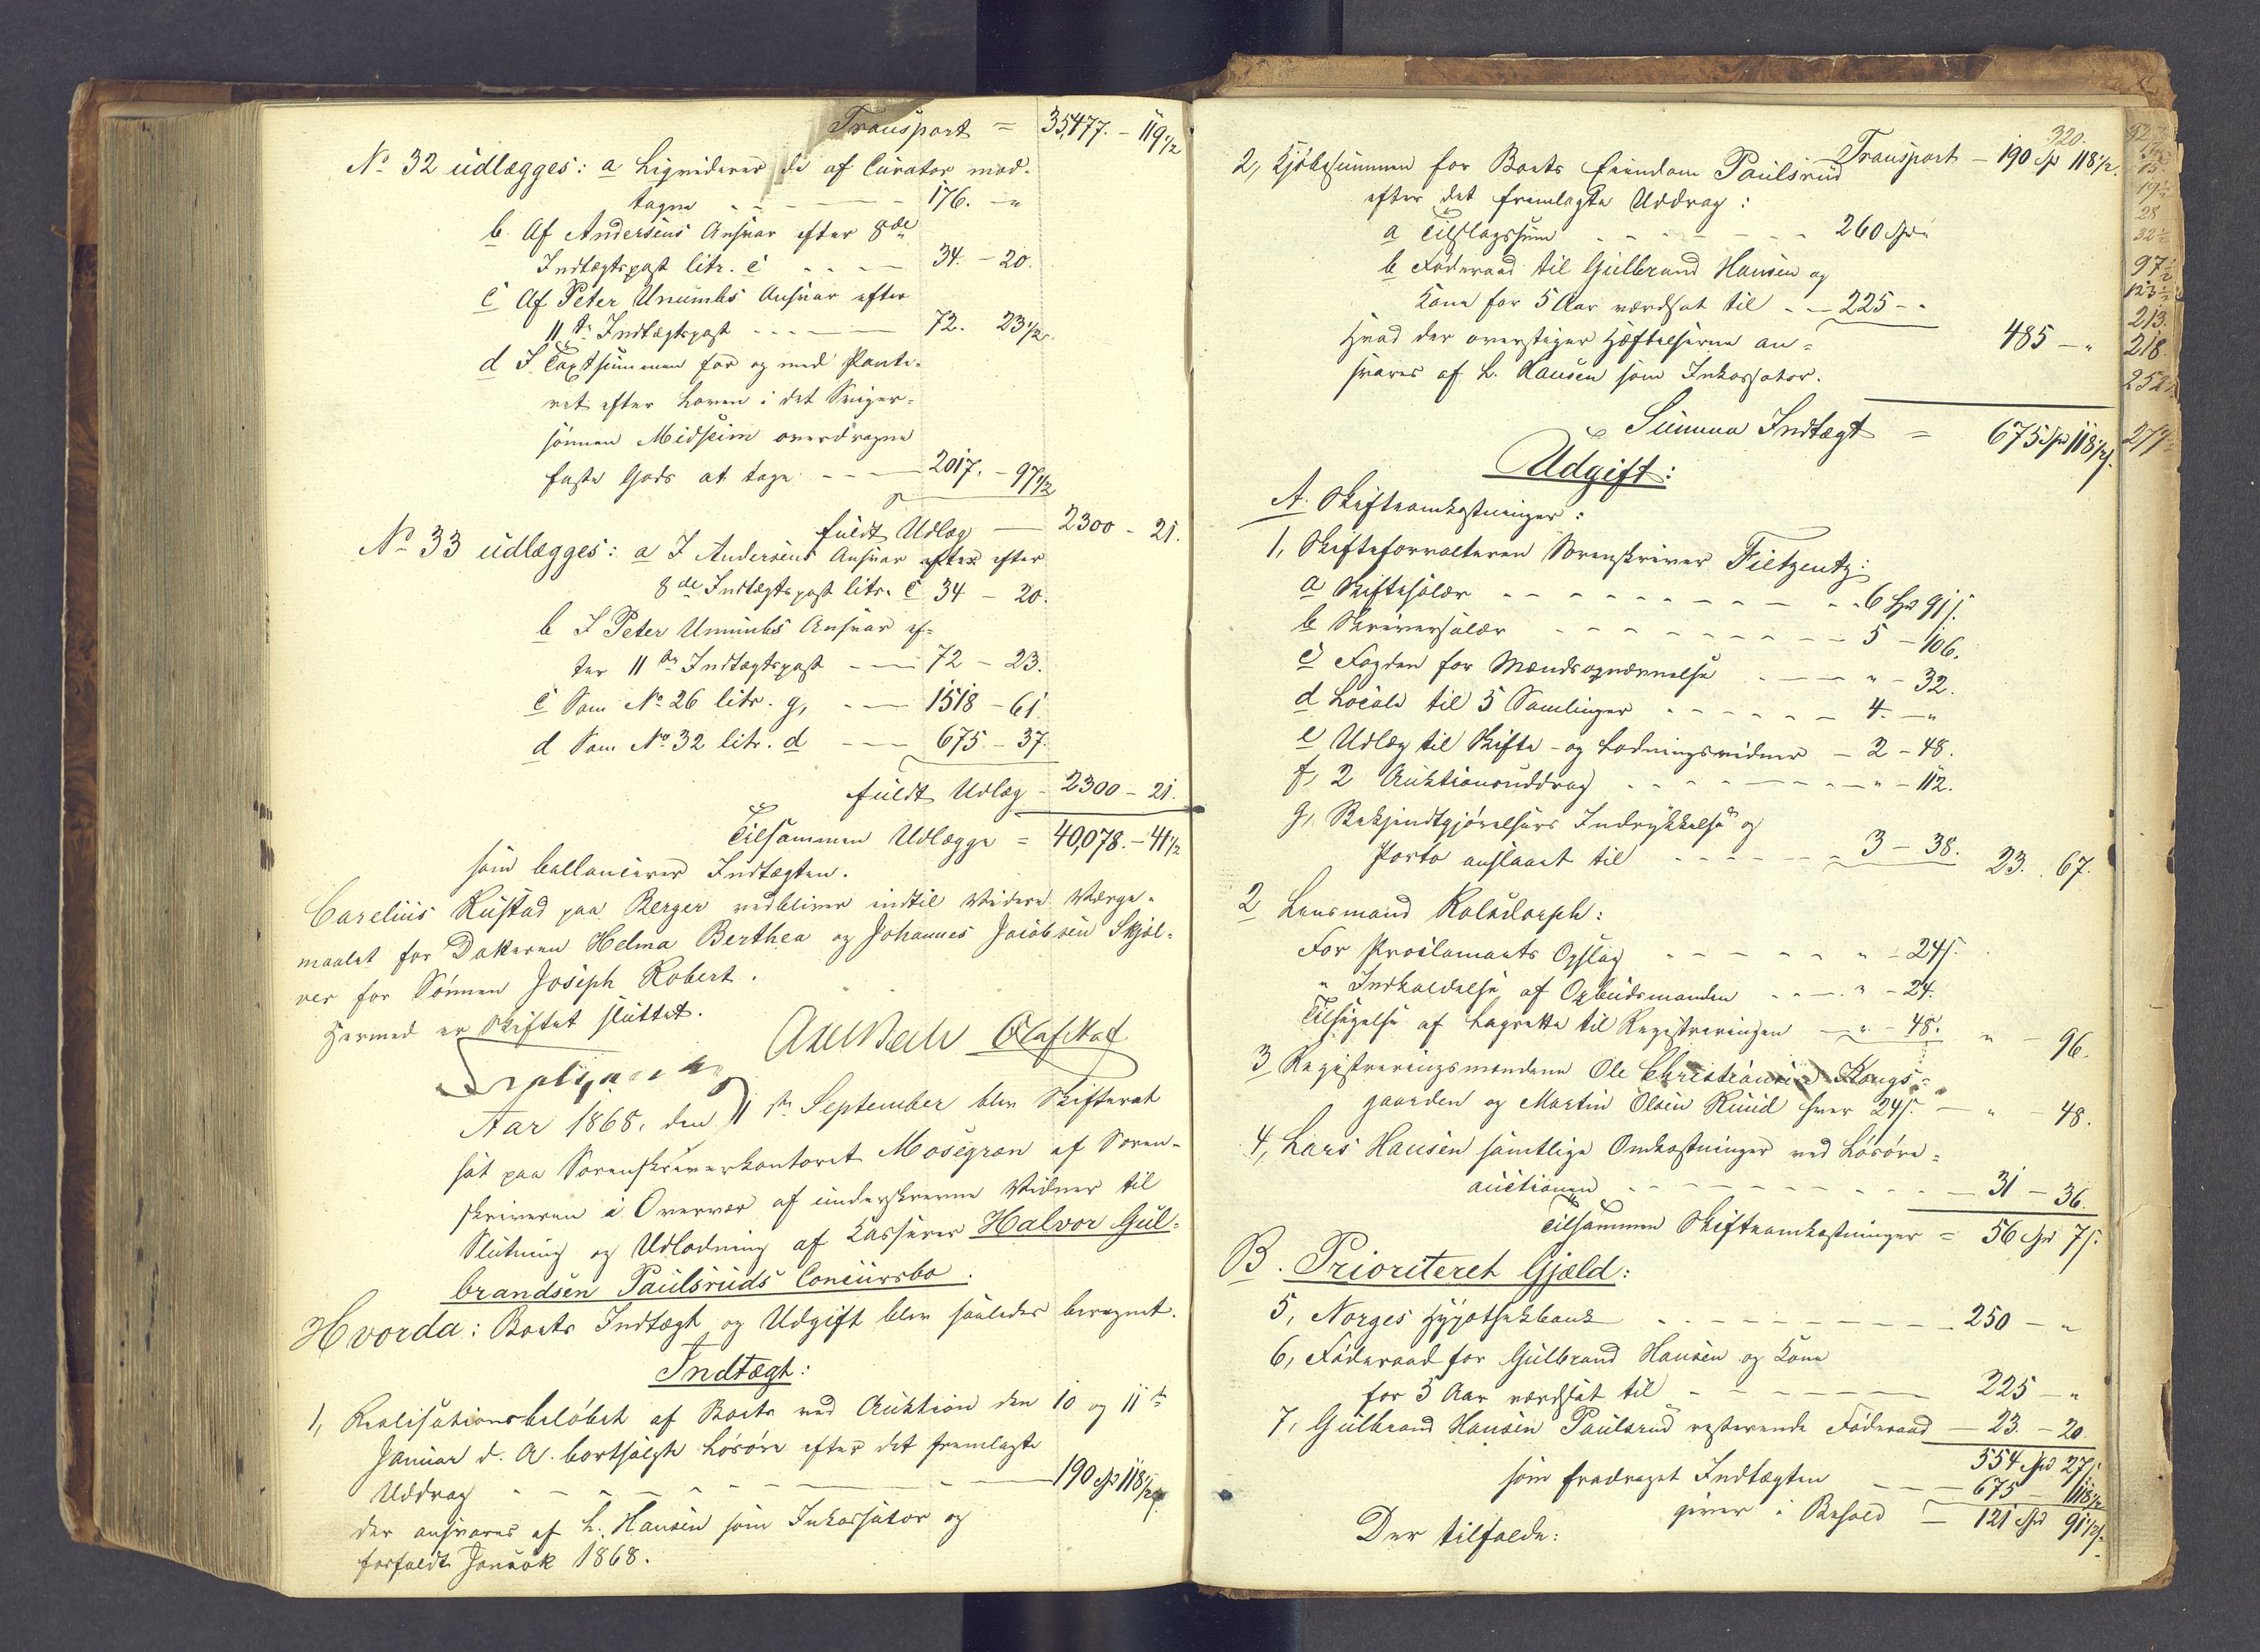 Transport = 35,477. - 119 1/2
No 32 udlægges: a Liqviderer de af Curator mod-
tagne - - - - 176. - "
b. Af Andersens Ansvar efter 8de
Indtægtspost litr. c - - - 34. - 20.
c Af Peter Unumbs Ansvar efter
11te Indtægtspost - - - - 72. 23 1/2
d I Taxtsummen for og med Pante-
ret efter Loven i det Sviger-
sønnen Midseim overdragne
faste Gods at tage - - - 2017. - 97 1/2
fuldt Udlæg - 2300 - 21.
No 33 udlægges: a I Andersens Ansvar efter efter
8de Indtægtspost litr. c 34 - 20.
b I Peter Unumbs Ansvar ef-
ter 11te Indtægtspost - - 72 - 23.
c Som No 26 litr. g, - - 1518 - 61.
d Som No 32 litr. d - - - 675 - 37.
fuldt Udlæg - 2300 - 21.
Tilsammen Udlægge = 40,078. - 41 1/2
som ballancerer Indtægten.
Carelius Rustad paa Berger vedbliver indtil Videre Værge-
maalet for Datteren Helma Berthea og Johannes Jacobsen Skjøl-
ver for Sønnen Joseph Robert.
Hermed er Skiftet sluttet.
Aar 1868, den 11te September blev Skifteret
sat paa Sorenskriverkontoret Mosegran af Soren-
skriveren i Overvær af underskrevne Vidner til
Slutning og Udlodning af Kasserer Halvor Gul-
brandsen Paulsruds Concursbo.
Hvorda: Boets Indtægt og Udgift blev saaledes beregnet.
Indtægt:
1, Realisationsbeløbet af Boets ved Auktion den 10 og 11te
Januar d. A. bortsolgte Løsøre efter det fremlagte
Uddrag - - - - - - - 190 Spd 118 1/2 s.
der ansvares af L. Hansen som Inkassator og
forfaldt Jonsok 1868.
320.
Transport - 190 Spd 118 1/2.
2, Kjøbesummen for Boets Eiendom Paulsrud
efter det fremlagte Uddrag:
a Tilslagssum - - - - - 260 Spd "
b Føderaad til Gulbrand Hansen og
Kone for 5 Aar værdsat til - - 225 - "
Hvad der overstiger Hæftelserne an-
svares af L. Hansen som Inkassator. 485 - "
Summa Indtægt = 675 Spd 118 1/2 s.
Udgift:
A. Skifteomkostninger:
1, Skifteforvalteren Sorenskriver Fietzentz:
a Skiftesalær - - - - - - - 6 Spd 91 s.
b Skriversalær - - - - - - - 5 - 106.
c Fogden for Mændsopnævnelse - - - " - 32.
d Locale til 5 Samlinger - - - - - 4. - "
e Udlæg til Skifte- og Lodningsvidner - 2 - 48.
f, 2 Auktionsuddrag - - - - - - " - 112.
g, Bekjendtgjørelsers Indrykkelse og
Porto anslaaet til - - - - - 3 - 38. 23. 67.
2 Lensmand Kolsdorph:
For Proclamaets Opslag - - - - - " - 24 s.
" Indkaldelse af Opbudsmanden - - - " - 24.
Tilsigelse af Lagrette til Registreringen - " - 48. " - 96.
3 Registreringsmændene Ole Christiansen Kongs-
gaarden og Martin Olsen Ruud hver 24 s. - " - 48.
4, Lars Hansen samtlige Omkostninger ved Løsøre-
auctionen - - - - - - - - 31 - 36.
Tilsammen Skifteomkostninger = 56 Spd 7 s.
B. Prioriteret Gjæld:
5, Norges Hypothekbank - - - - - - 250 - "
6, Føderaad for Gulbrand Hansen og Kone
for 5 Aar værdsat til - - - - - 225 - "
7, Gulbrand Hansen Paulsrud resterende Føderaad - 23. - 20.
554 Spd 27 s.
som fradraget Indtægten - - - 675 - 118 1/2
giver i Behold - 121 Spd 91 1/2 s.
Der tilfalde: